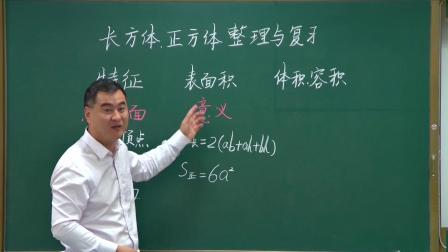 长方体、正方体整理与复习
特征 表面积 体积、容积
面 意义
顶点 =2(ab+ah+bh)
S正=6a²